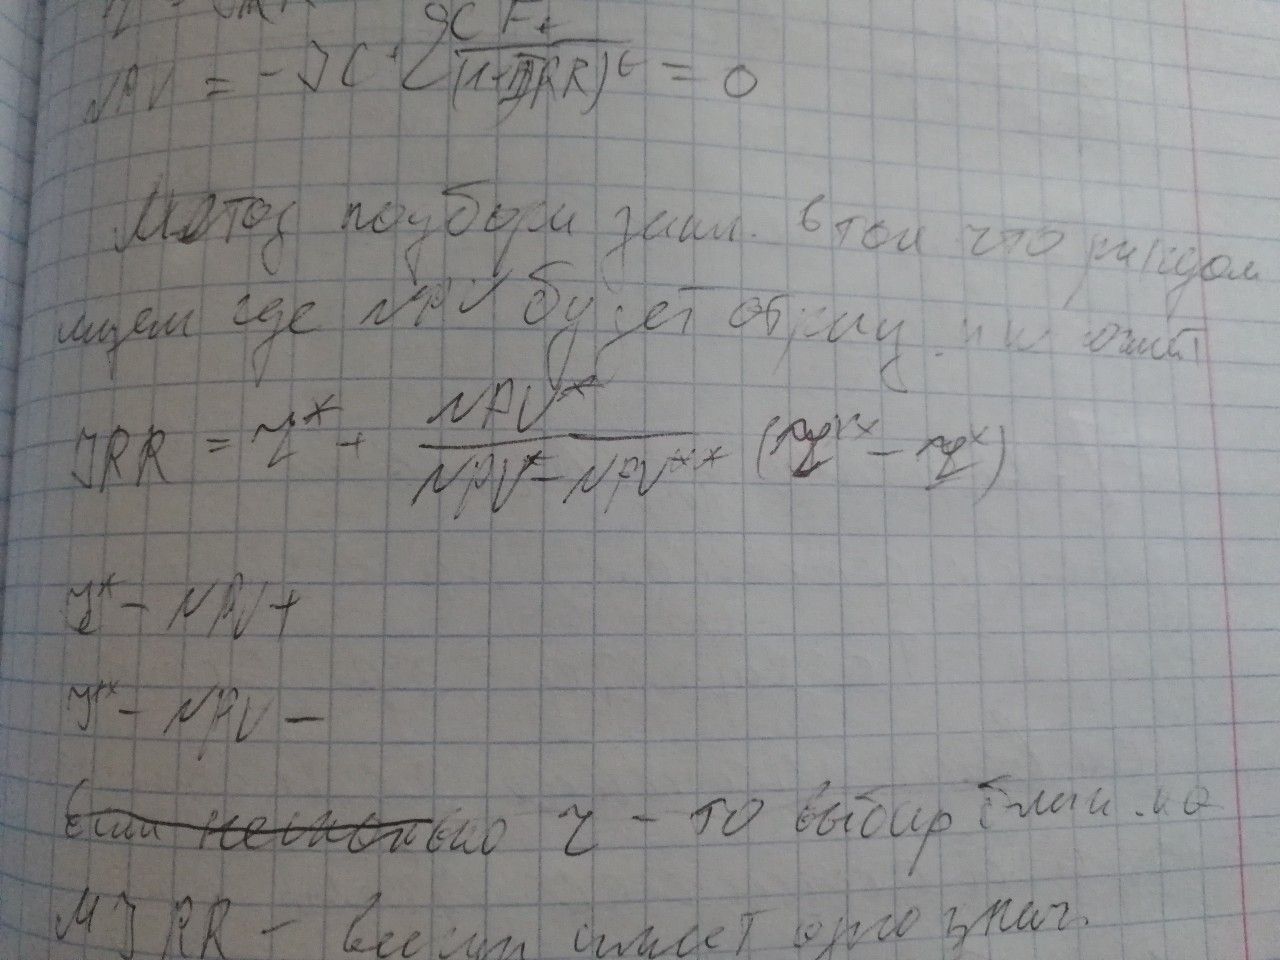 NPV = - IC + Σ CF t / (1+IRR)^t = 0
Метод подбора закл. в том что рандом
ищем где NPV будет отриц. и
IRR = r* + NPV* / (NPV* - NPV**) (r** - r*)
r* - NPV +
r** - NPV -
Если несколько r - то выбир
MIRR - всегда имеет одно знач.